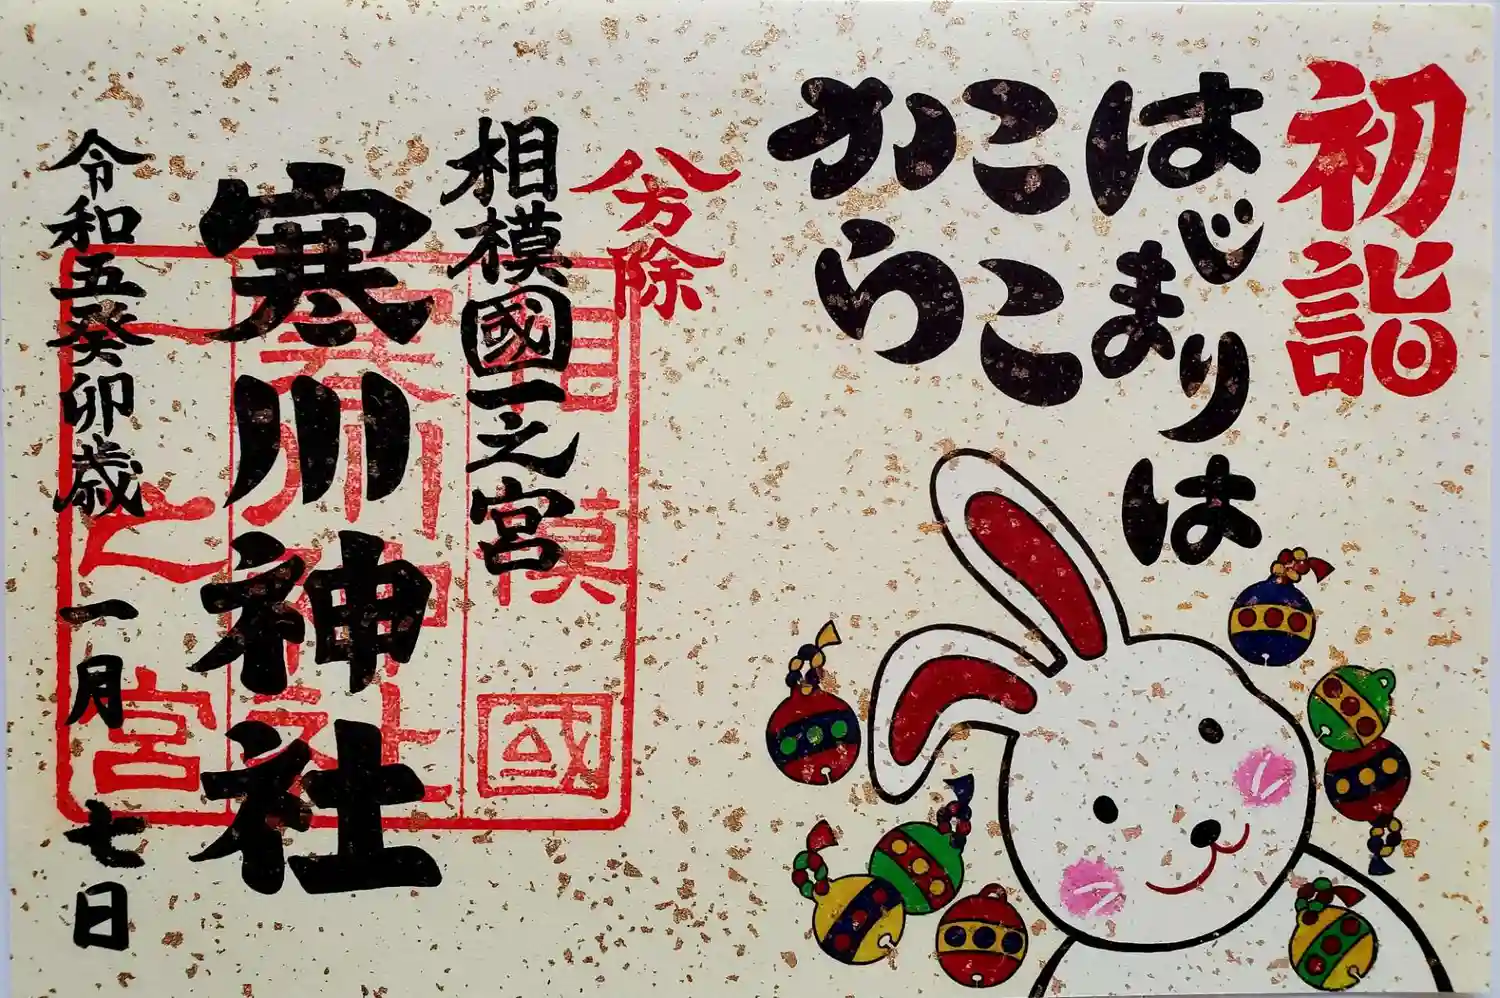 初詣
はじまりは
ここ
から
八方除
相模國一之宮
寒川神社
令和五癸卯歳
一月
七日
相模國
寒川神社
一之宮